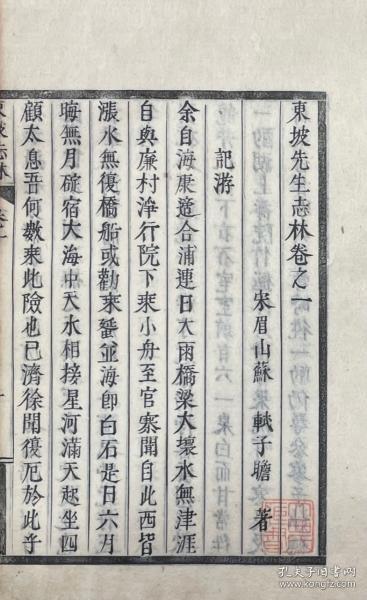 東坡先生志林卷之一
宋眉山蘇軾子瞻著
記游
余自海康適合浦連日大雨橋梁大壞水無津涯
自興廉村淨行院下乘小舟至官寨聞自此西皆
漲水無復橋船或勸乘蜑並海即白石是日六月
晦無月碇宿大海中天水相接星河滿天起坐四
顧太息吾何數乘此險也已濟徐聞復厄於此乎
孔夫子旧书网